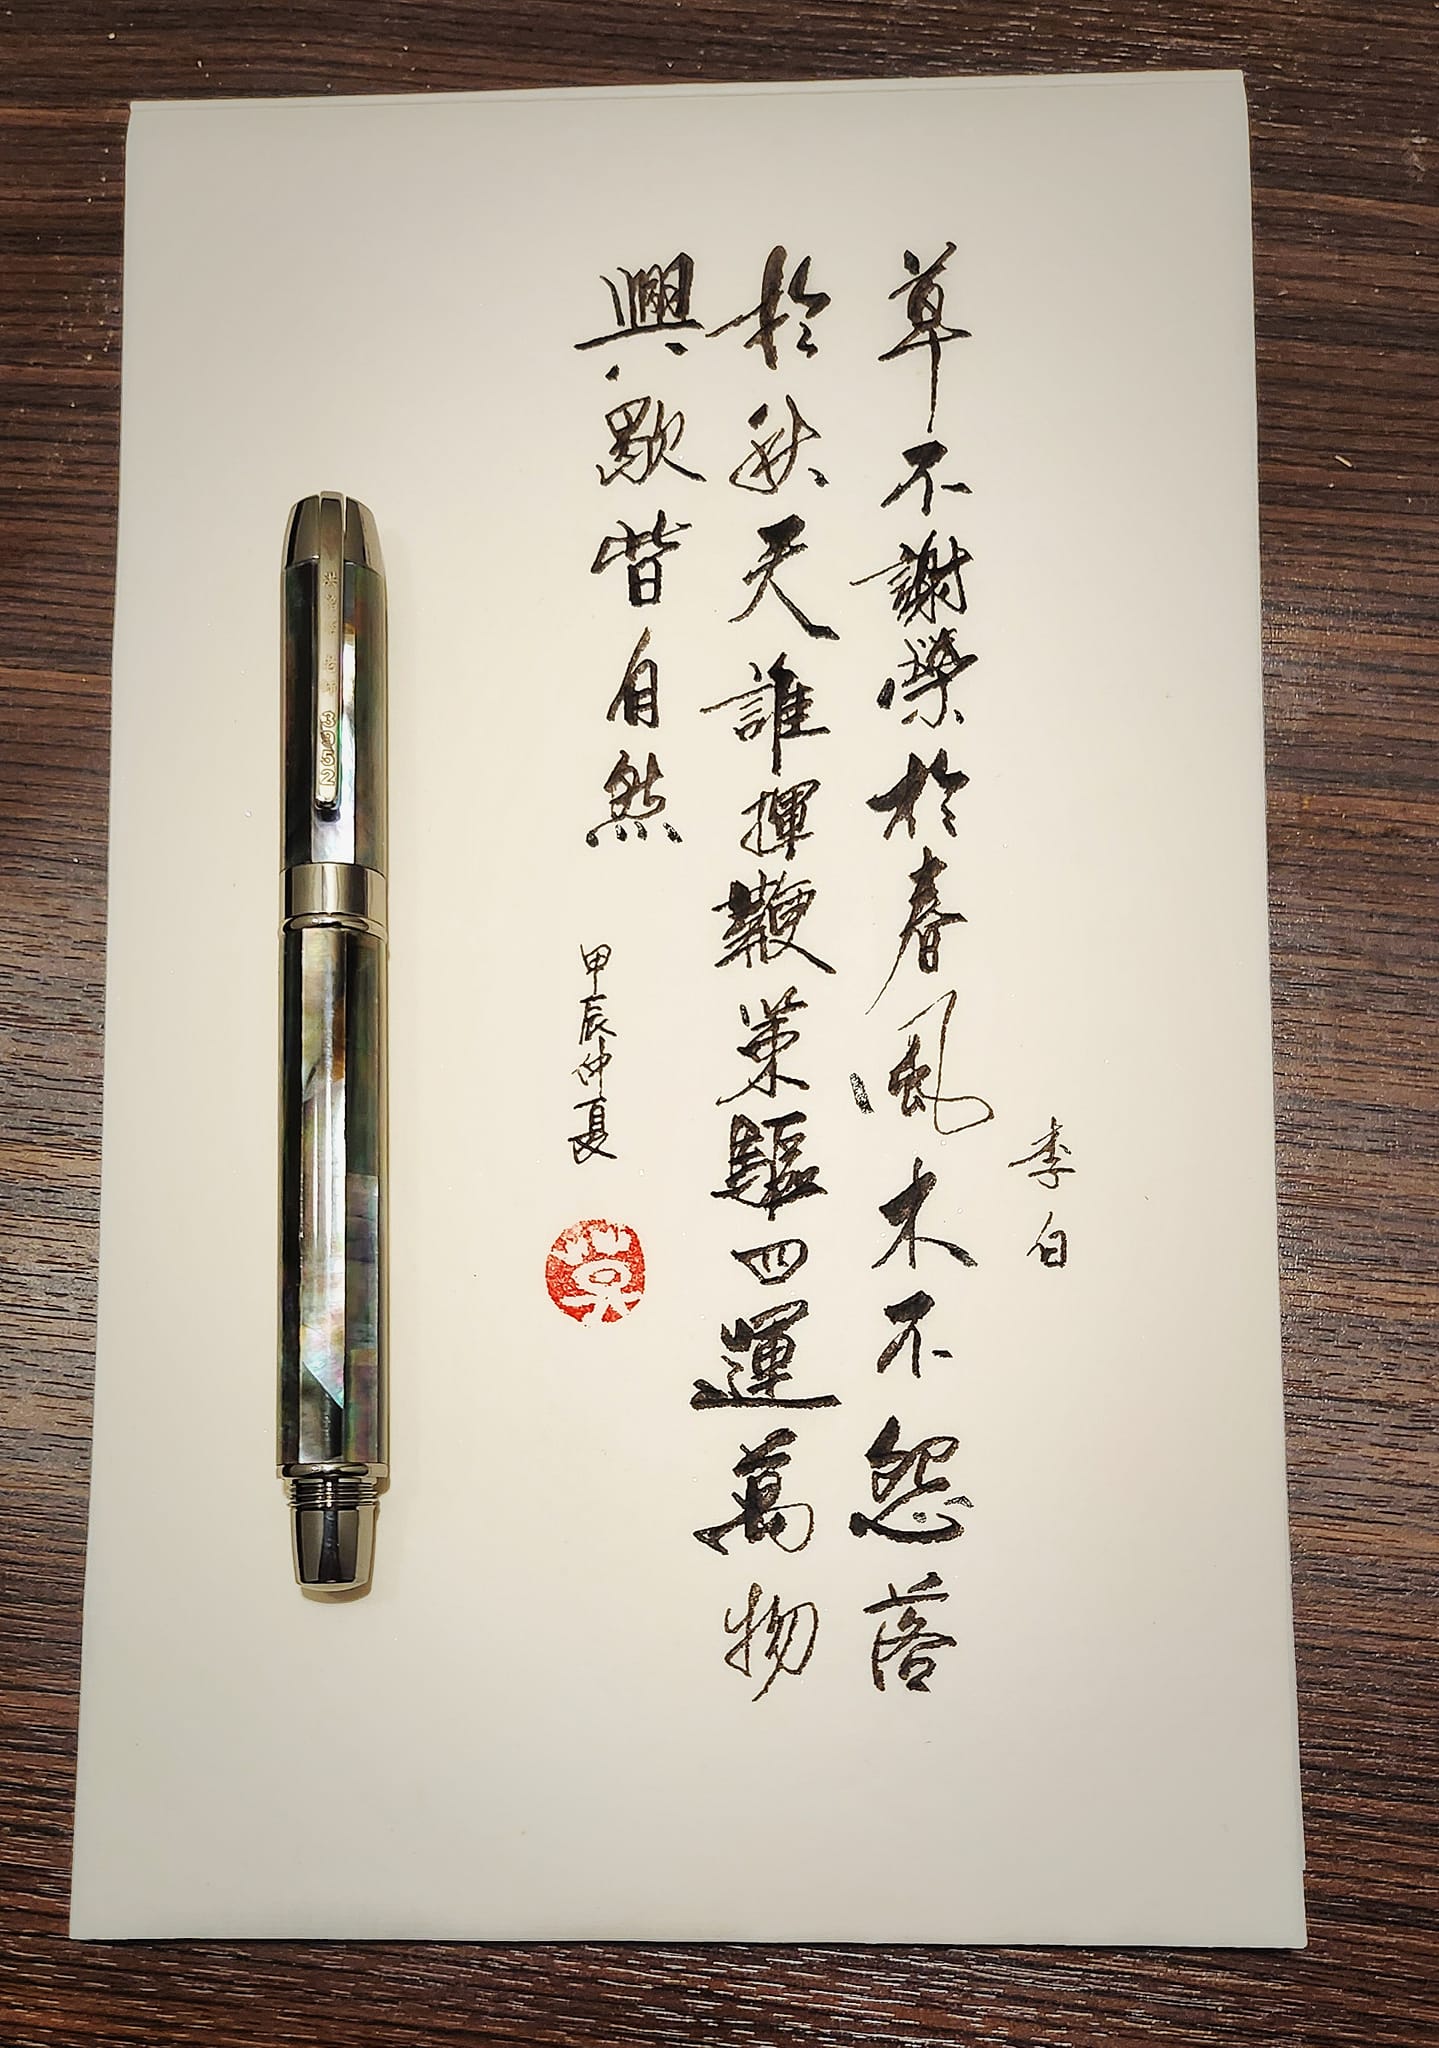 李白
草不謝榮於春風木不怨落
於秋天誰揮鞭策驅四運萬物
興歇皆自然
甲辰仲夏
3952